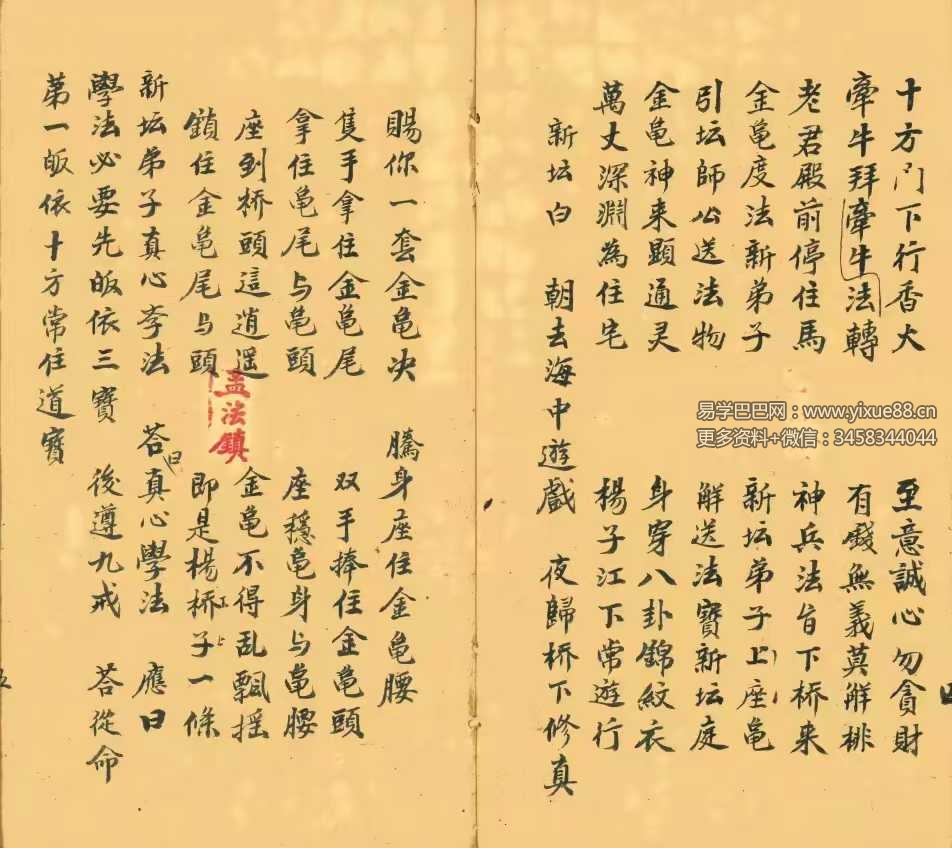 十方门下行香火 至意誠心勿貪財
牽牛拜牽牛法轉 有錢無義莫解排
老君殿前停住馬 神兵法旨下桥来
金亀度法新弟子 新坛弟子上座亀
引坛師公送法物 解送法寶新坛庭
金亀神来顕通灵 身穿八卦錦紋衣
萬丈深淵為住宅 楊子江下常遊行
新坛白 朝去海中遊戲 夜歸桥下修真
賜你一套金亀决 騰身座住金亀腰
隻手拿住金亀尾 双手捧住金亀頭
拿住亀尾与亀頭 座穩亀身与亀腰
座到桥頭這逍遥 金亀不得乱飄摇
鎖住金亀尾与頭 即是楊桥子一條
江上
新坛弟子真心李法 荅曰真心學法 應曰
學法必要先皈依三寶 後遵九戒 荅從命
第一皈依十方常住道寶
孟法鎮
易学巴巴网：www.yixue88.cn
更多资料+微信：3458344044